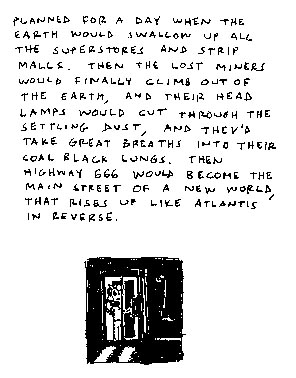 PLANNED FOR A DAY WHEN THE
EARTH WOULD SWALLOW UP ALL
THE SUPERSTORES AND STRIP
MALLS. THEN THE LOST MINERS
WOULD FINALLY CLIMB OUT OF
THE EARTH, AND THEIR HEAD
LAMPS WOULD CUT THROUGH THE
SETTLING DUST, AND THEY'D
TAKE GREAT BREATHS INTO THEIR
COAL BLACK LUNGS. THEN
HIGHWAY 666 WOULD BECOME THE
MAIN STREET OF A NEW WORLD,
THAT RISES UP LIKE ATLANTIS
IN REVERSE.